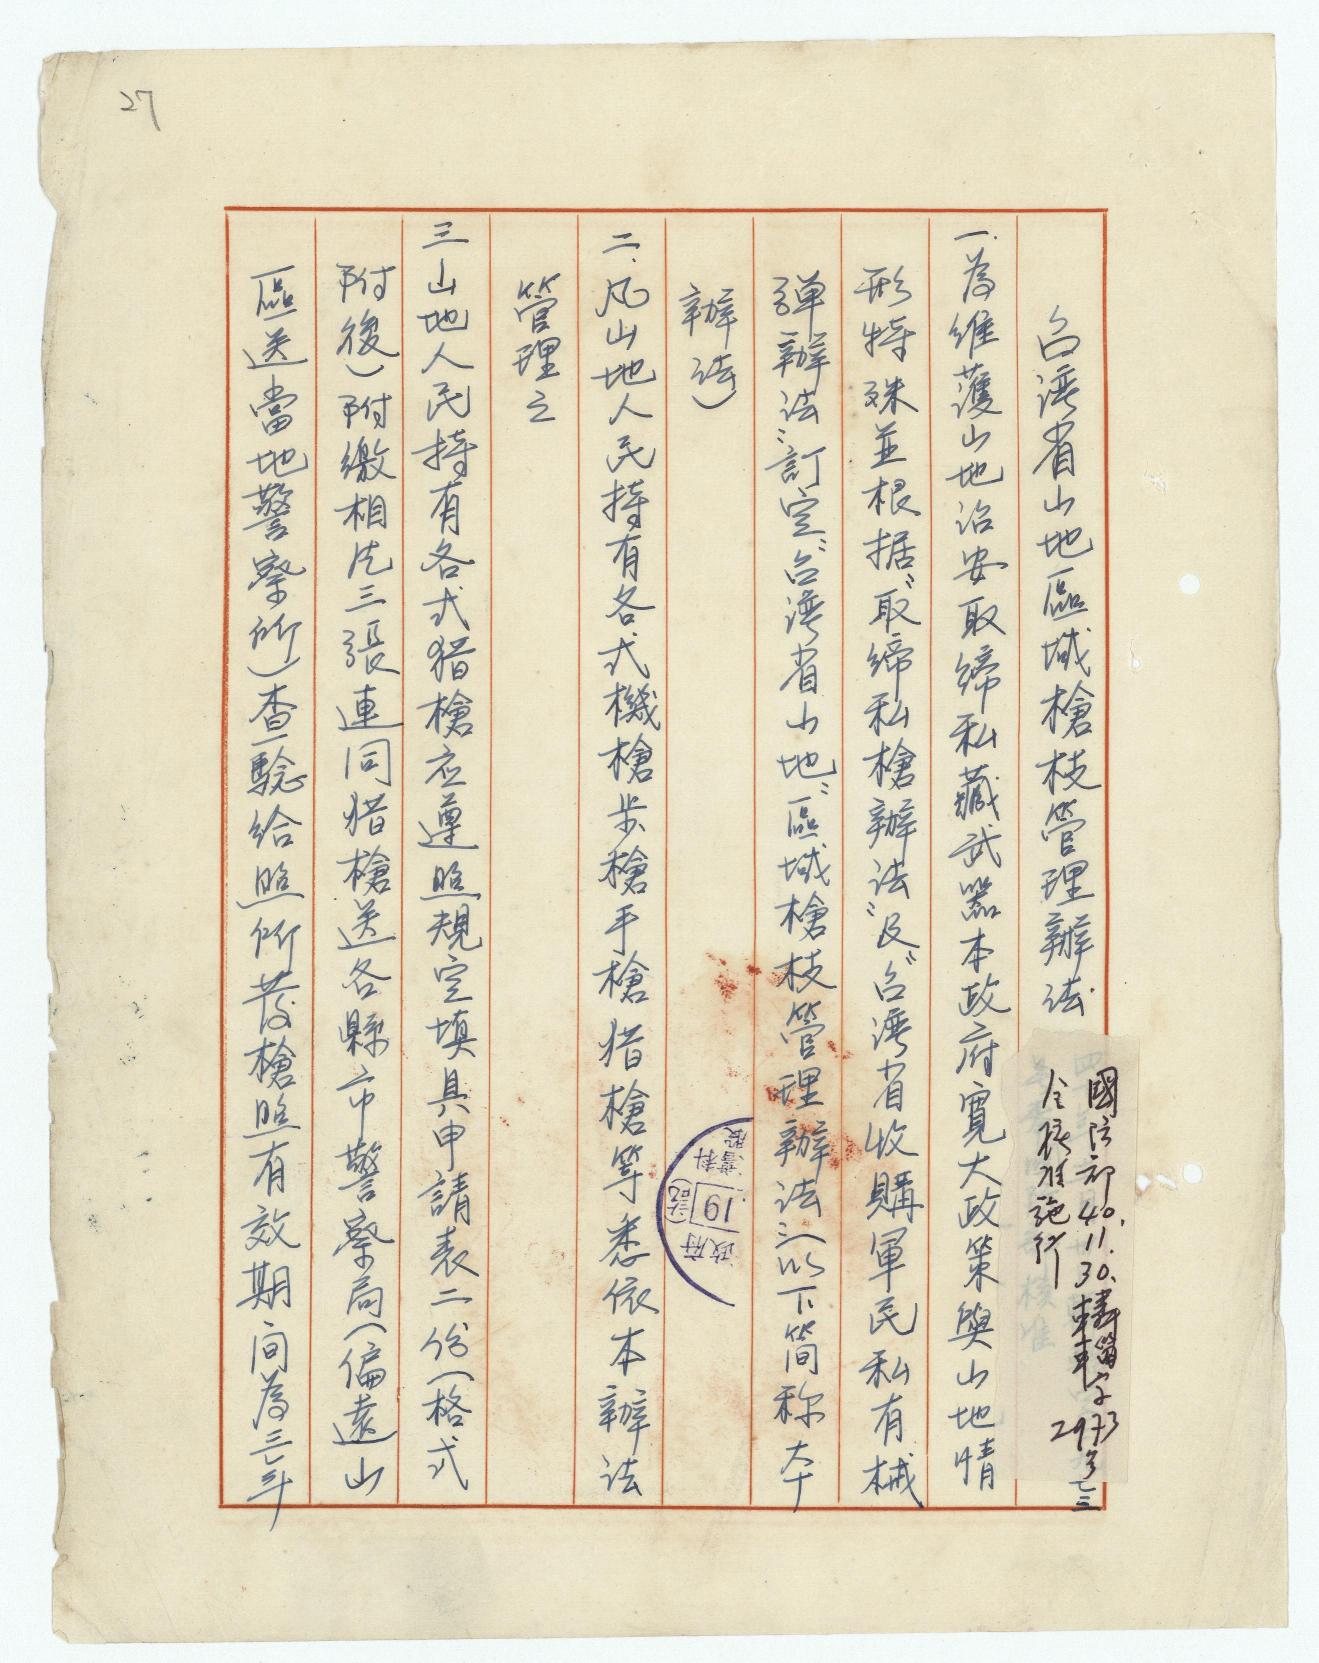 27
台湾省山地區域槍枝管理辦法
國防部40.11.30.
令核准施行
2973
一.為維護山地治安取締私藏武器本政府寬大政策與山地情
形特殊並根据〝取締私槍辦法〞及〝台湾省收購軍民私有械
弾辦法〞訂定〝台湾省山地〞區域槍枝管理辦法〞(以下简称本
辦法)
二.凡山地人民持有各式機槍步槍手槍猎槍等悉依本辦法
管理之
三山地人民持有各式猎槍应遵照規定填具申請表二份(格式
附後)附缴相片三張連同猎槍送各縣市警察局(偏遠山
區送當地警察所)查驗给照所發槍照有效期间為三年
政府
19